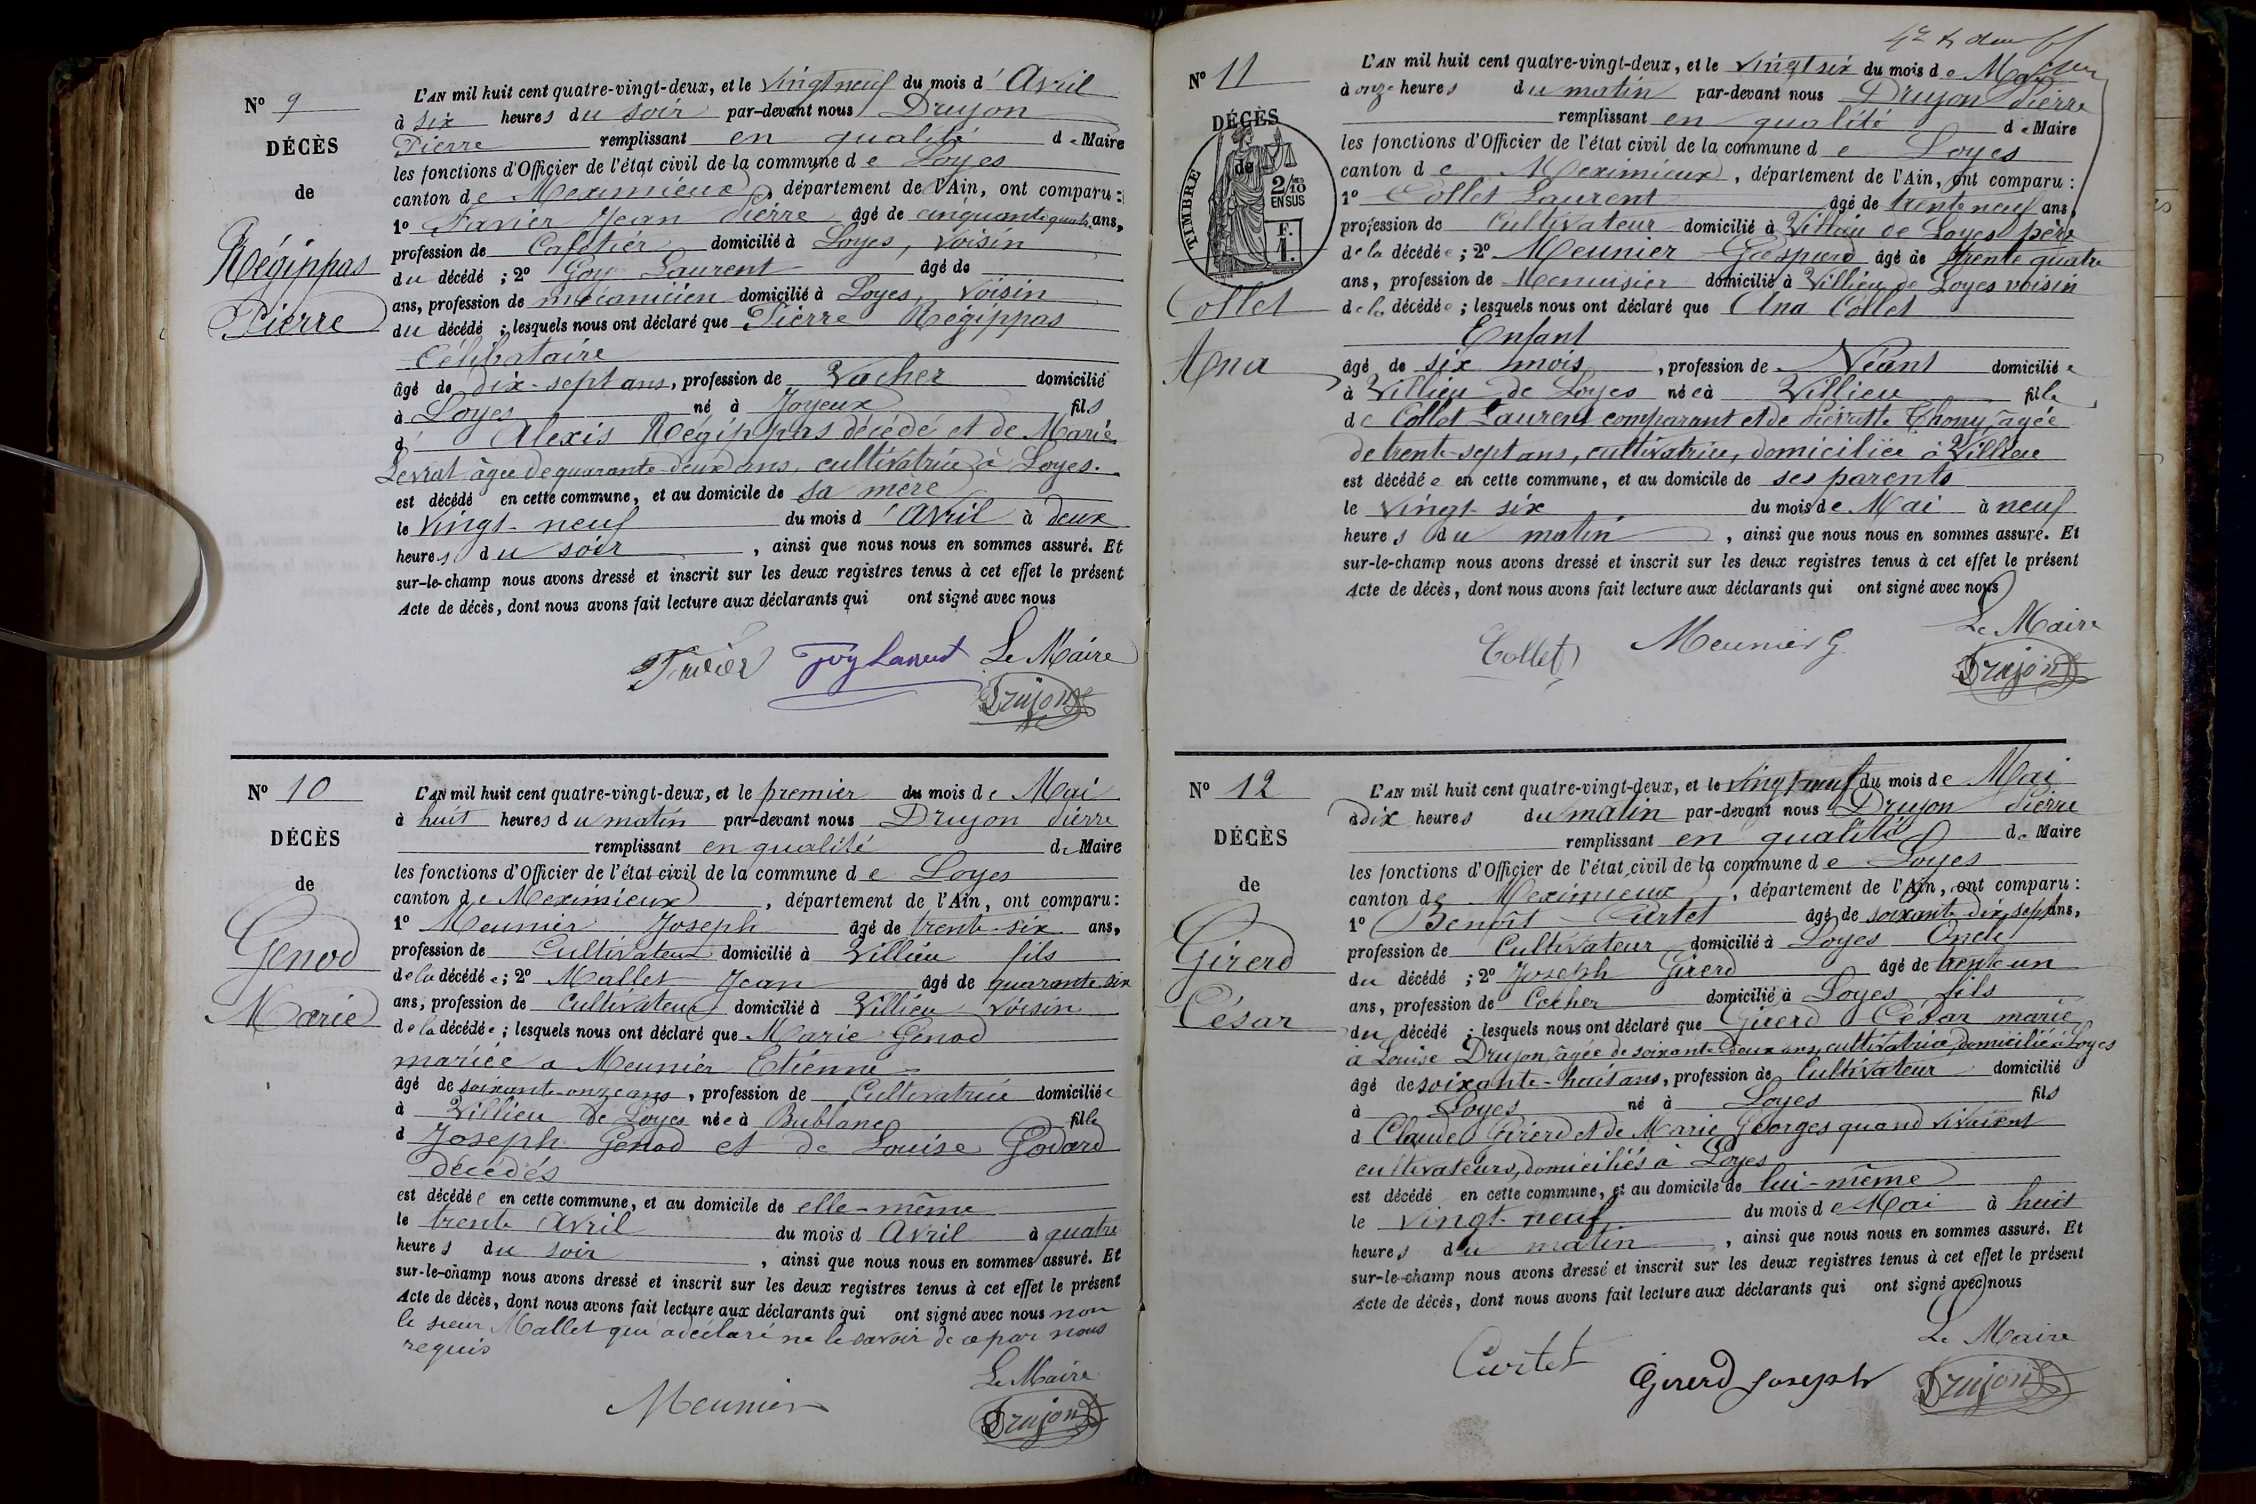 N° 9
DÉCÈS
de
Régippas
Pierre
L'AN mil huit cent quatre-vingt-deux, et le vingt neuf du mois d' Avril
à six heures du soir par-devant nous Drujon
Pierre remplissant en qualité de Maire
les fonctions d'Officier de l'état civil de la commune de Loyes
canton de Meximieux, département de l'Ain, ont comparu :
1° Favier Jean Pierre âgé de cinquante quatre ans,
profession de Cafetier domicilié à Loyes, voisin
du décédé ; 2° Goy Laurent âgé de
ans, profession de mécanicien domicilié à Loyes, voisin
du décédé ; lesquels nous ont déclaré que Pierre Régippas
Célibataire
âgé de dix-sept ans, profession de Vacher domicilié
à Loyes né à Joyeux fils
d' Alexis Régippas décédé et de Marie
Levrat âgée de quarante-deux ans, cultivatrice à Loyes.
est décédé en cette commune, et au domicile de sa mère
le vingt-neuf du mois d'avril à deux
heures du soir, ainsi que nous nous en sommes assuré. Et
sur-le-champ nous avons dressé et inscrit sur les deux registres tenus à cet effet le présent
Acte de décès, dont nous avons fait lecture aux déclarants qui ont signé avec nous
Favier Goy Laurent Le Maire
Drujon
N° 10
DÉCÈS
de
Genod
Marie
L'AN mil huit cent quatre-vingt-deux, et le premier du mois de Mai
à huit heures du matin par-devant nous Drujon Pierre
remplissant en qualité de Maire
les fonctions d'Officier de l'état civil de la commune de Loyes
canton de Meximieux, département de l'Ain, ont comparu :
1° Meunier Joseph âgé de trente-six ans,
profession de Cultivateur domicilié à Villieu fils
de la décédée ; 2° Mallet Jean âgé de quarante-six
ans, profession de cultivateur domicilié à Villieu voisin
de la décédée ; lesquels nous ont déclaré que Marie Genod
mariée a Meunier Etienne
âgé de soixante-onze ans, profession de Cultivatrice domiciliée
à Villieu de Loyes née à Bublane fille
d Joseph Genod et de Louise Godard
décédés
est décédée en cette commune, et au domicile de elle-même
le trente Avril du mois d Avril à quatre
heures du soir, ainsi que nous nous en sommes assuré. Et
sur-le-champ nous avons dressé et inscrit sur les deux registres tenus à cet effet le présent
Acte de décès, dont nous avons fait lecture aux déclarants qui ont signé avec nous non
le sieur Mallet qui a déclaré ne le savoir de ce par nous
requis
Le Maire
Meunier Drujon
N° 11
DÉCÈS
de
TIMBRE
2/10 EN SUS
F. 1.
Collet
Ana
L'AN mil huit cent quatre-vingt-deux, et le vingt six du mois de Mai
à onze heures du matin par-devant nous Drujon Pierre
remplissant en qualité de Maire
les fonctions d'Officier de l'état civil de la commune de Loyes
canton de Meximieux, département de l'Ain, ont comparu :
1° Collet Laurent âgé de trente neuf ans,
profession de Cultivateur domicilié à Villieu de Loyes père
de la décédée ; 2° Meunier Gaspard âgé de trente quatre
ans, profession de Menuisier domicilié à Villieu de Loyes voisin
de la décédée ; lesquels nous ont déclaré que Ana Collet
Enfant
âgé de six mois, profession de Néant domiciliée
à Villieu de Loyes née à Villieu fille
de Collet Laurent comparant et de Pierrette Thomy, âgée
de trente-sept ans, cultivatrice, domiciliée à Villieu
est décédée en cette commune, et au domicile de ses parents
le vingt-six du mois de Mai à neuf
heures du matin, ainsi que nous nous en sommes assuré. Et
sur-le-champ nous avons dressé et inscrit sur les deux registres tenus à cet effet le présent
Acte de décès, dont nous avons fait lecture aux déclarants qui ont signé avec nous
Collet Meunier G Le Maire
Drujon
N° 12
DÉCÈS
de
Girerd
César
L'AN mil huit cent quatre-vingt-deux, et le vingt neuf du mois de Mai
à dix heures du matin par-devant nous Drujon Pierre
remplissant en qualité de Maire
les fonctions d'Officier de l'état civil de la commune de Loyes
canton de Meximieux, département de l'Ain, ont comparu :
1° Benoît Curtet âgé de soixante dix sept ans,
profession de Cultivateur domicilié à Loyes Oncle
du décédé ; 2° Joseph Girerd âgé de trente un
ans, profession de Cocher domicilié à Loyes fils
du décédé ; lesquels nous ont déclaré que Girerd César marié
à Louise Drujon, âgée de soixante-deux ans, cultivatrice, domiciliée à Loyes
âgé de soixante-huit ans, profession de Cultivateur domicilié
à Loyes né à Loyes fils
d Claude Girerd et de Marie Georges quand vivaient
cultivateurs, domiciliés à Loyes
est décédé en cette commune, et au domicile de lui-même
le vingt-neuf du mois de Mai à huit
heures du matin, ainsi que nous nous en sommes assuré. Et
sur-le-champ nous avons dressé et inscrit sur les deux registres tenus à cet effet le présent
Acte de décès, dont nous avons fait lecture aux déclarants qui ont signé avec nous
Le Maire
Curtet Girerd Joseph Drujon